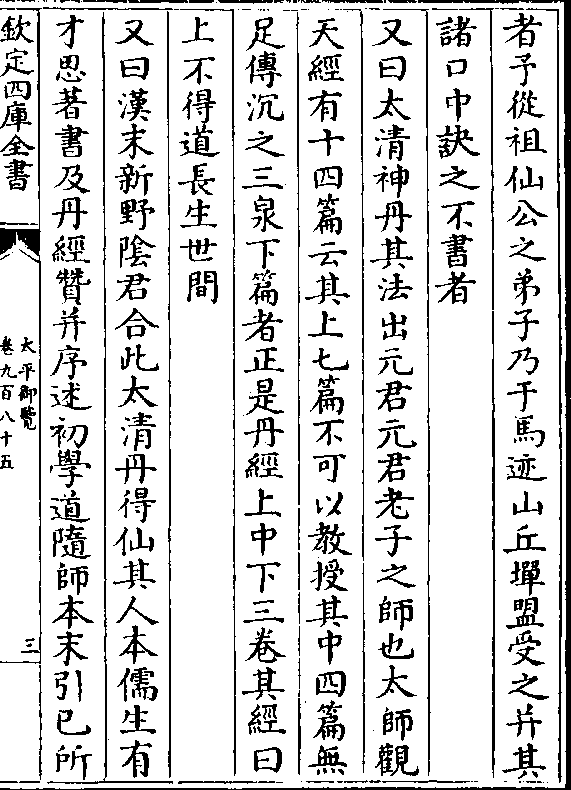 者予從祖仙公之弟子乃于馬迹山丘墠盟受之并其
諸口中訣之不書者
又曰太清神丹其法出元君元君老子之師也太師觀
天經有十四篇云其上七篇不可以教授其中四篇無
足傳沉之三泉下篇者正是丹經上中下三卷其經曰
上不得道長生世間
又曰漢末新野隂君合此太清丹得仙其人本儒生有
才思著書及丹經贊并序述初學道隨師本末引已所
欽定四庫全書
太平御覽
卷九百八十五
三